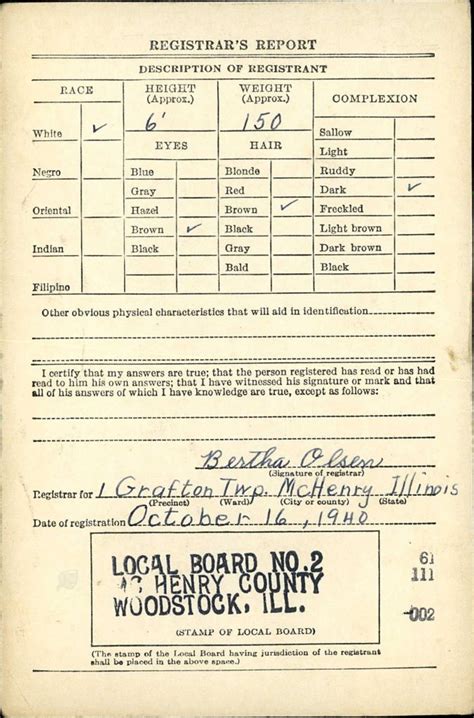 REGISTRAR'S REPORT
DESCRIPTION OF REGISTRANT
RACE
HEIGHT (Approx.)
WEIGHT (Approx.)
COMPLEXION
6' 150
EYES HAIR
White ✓
Sallow
Light
Negro Blue Blonde Ruddy
Gray Red Dark ✓
Oriental Hazel Brown ✓ Freckled
Brown ✓ Black Light brown
Indian Black Gray Dark brown
Bald Black
Filipino
Other obvious physical characteristics that will aid in identification
I certify that my answers are true; that the person registered has read or has had
read to him his own answers; that I have witnessed his signature or mark and that
all of his answers of which I have knowledge are true, except as follows:
Bertha Olsen
(Signature of registrar)
Registrar for 1 Grafton Twp. McHenry Illinois
(Precinct) (Ward) (City or county) (State)
Date of registration October 16, 1940
LOCAL BOARD NO. 2
HENRY COUNTY
WOODSTOCK, ILL.
61
111
002
(STAMP OF LOCAL BOARD)
(The stamp of the Local Board having jurisdiction of the registrant
shall be placed in the above space.)